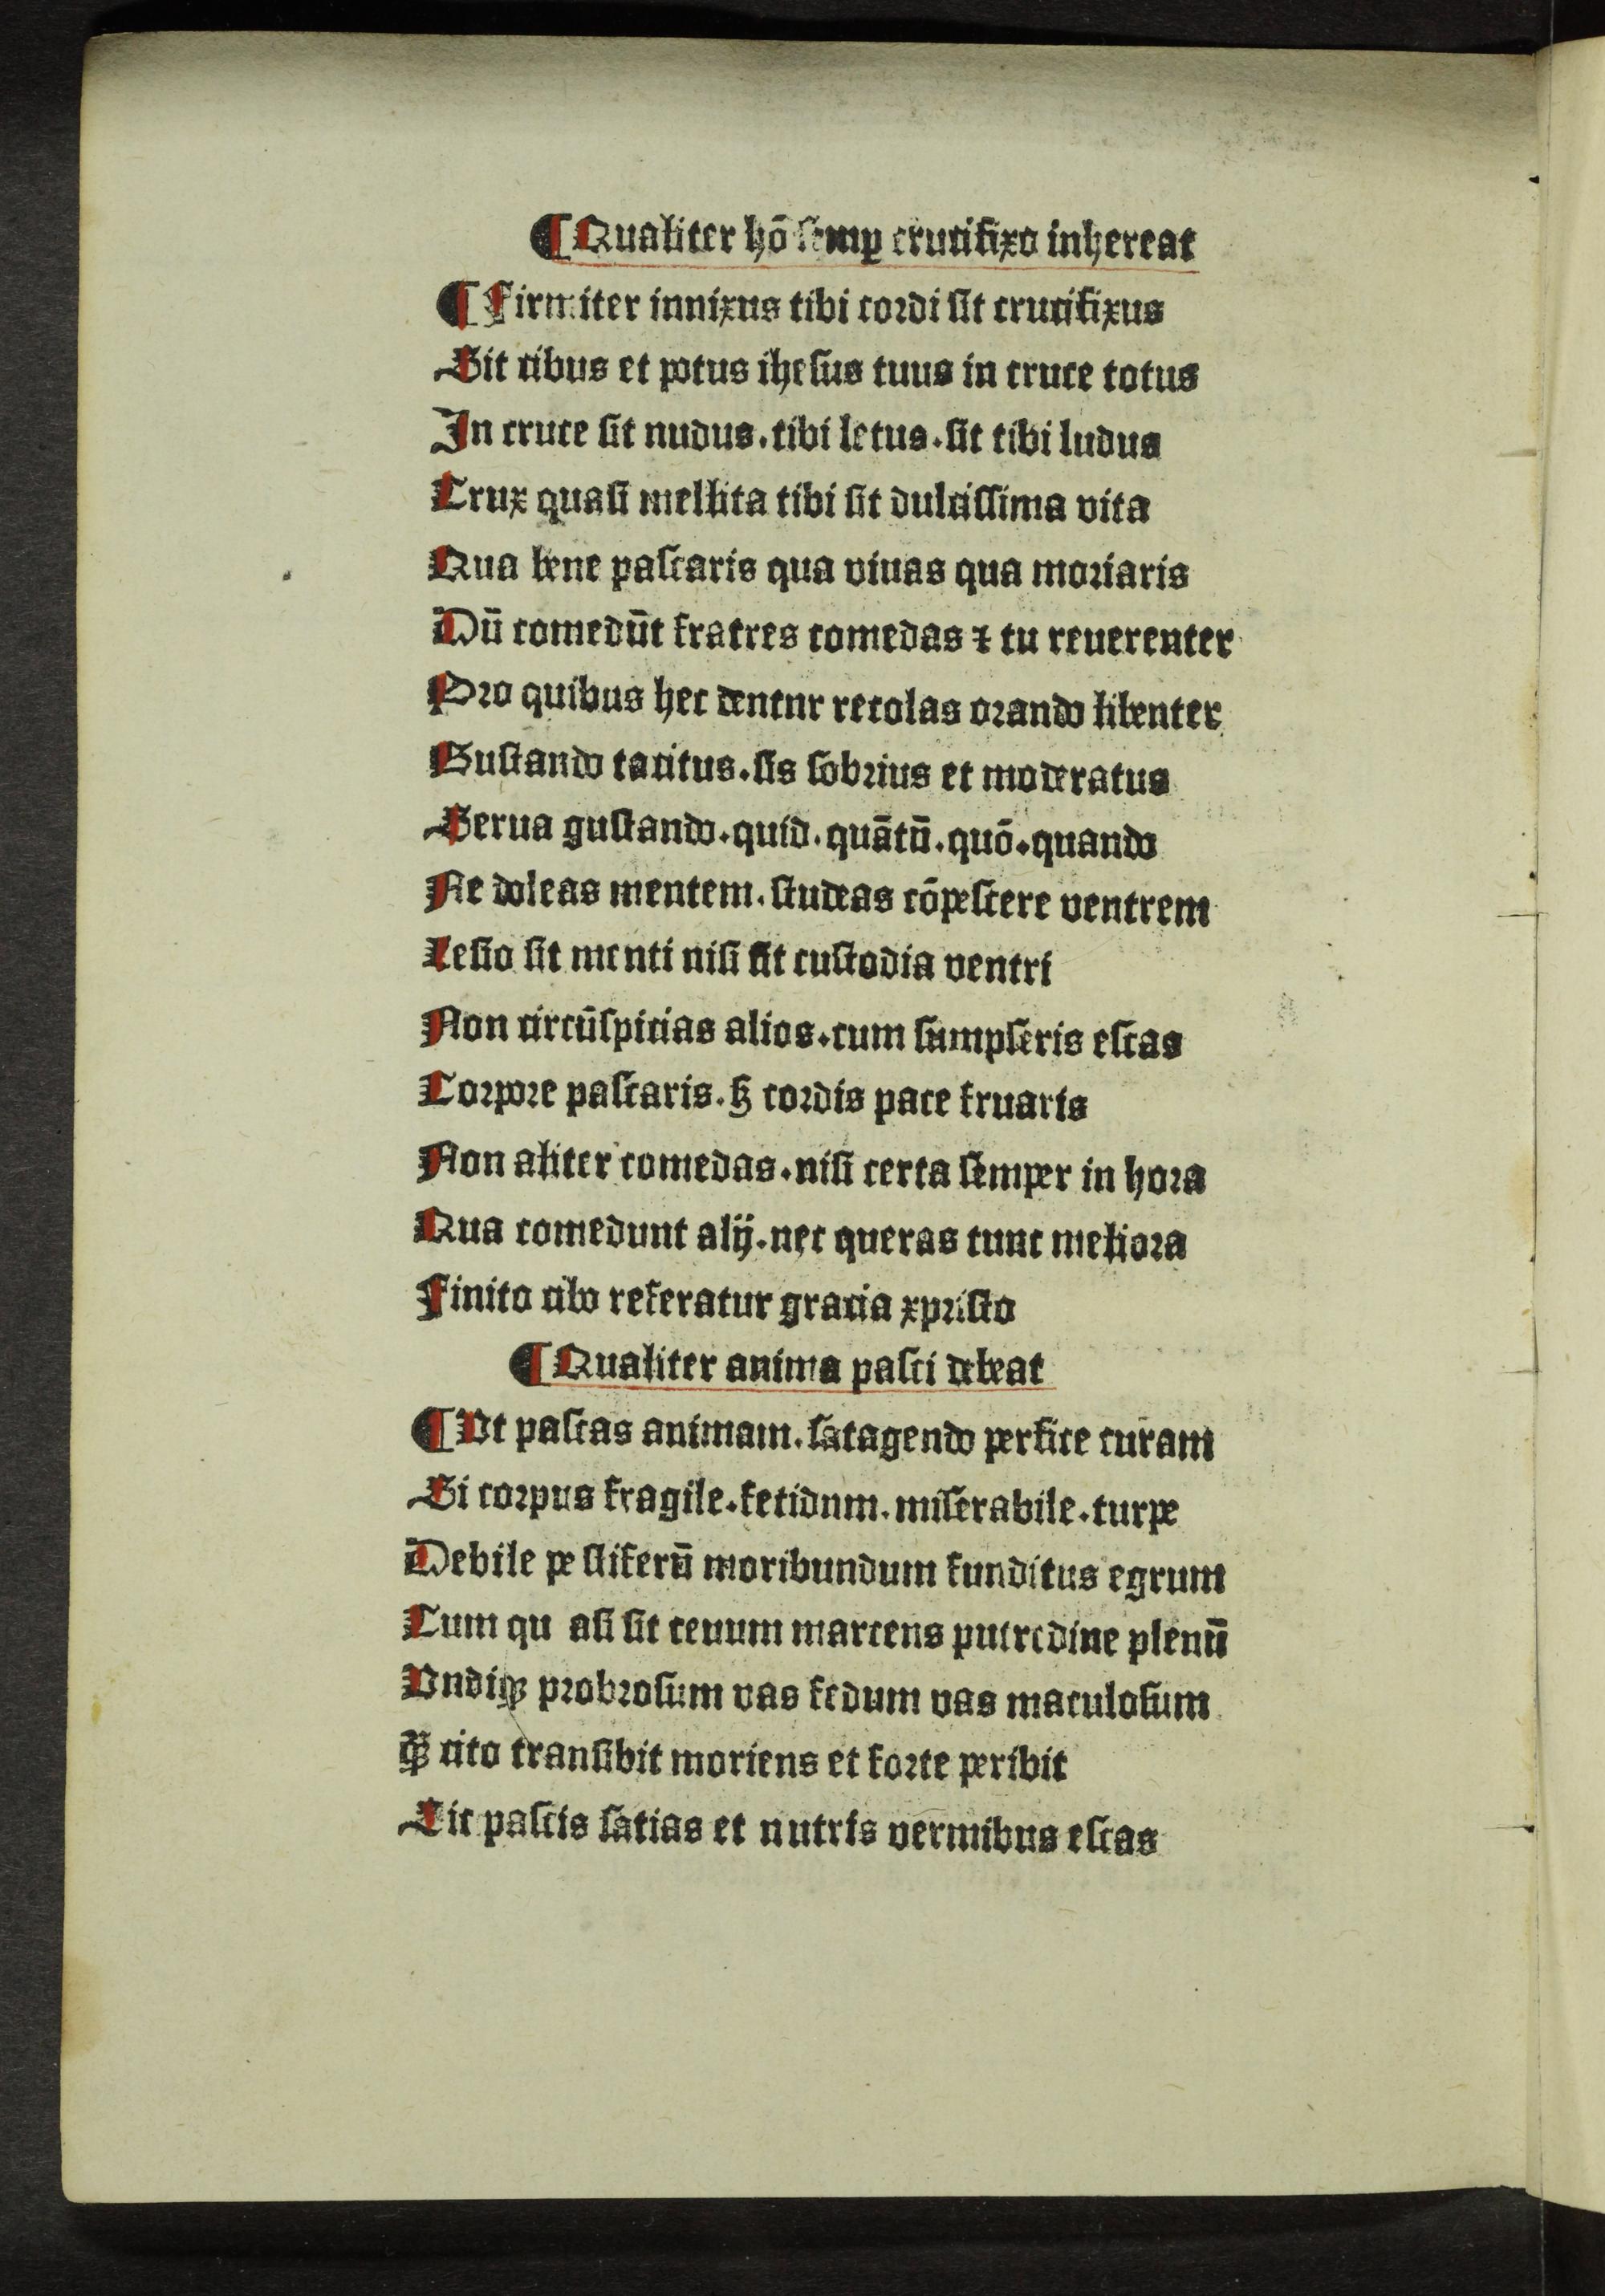 ¶ Qualiter hō semꝑ crucifixo inhereat
¶ Firmiter innixus tibi cordi sit crucifixus
Sit cibus et potus ihesus tuus in cruce totus
In cruce sit nudus. tibi letus. sit tibi ludus
Crux quasi mellita tibi sit dulcissima vita
Qua bene pascaris qua viuas qua moriaris
Dū comedūt fratres comedas ⁊ tu reuerenter
Pro quibus hec dentnr recolas orando libenter
Gustando tacitus. sis sobrius et moderatus
Serua gustando. quid. quātū. quō. quando
Ne doleas mentem. studeas cōpescere ventrem
Lesio sit menti nisi sit custodia ventri
Non circūspicias alios. cum sumpseris escas
Corpore pascaris. sꝫ cordis pace fruaris
Non aliter comedas. nisi certa semper in hora
Qua comedunt alij. nec queras tunc meliora
Finito cibo referatur gracia xpristo
¶ Qualiter anima pasci debeat
¶ Vt pascas animam. satagendo perfice curam
Si corpus fragile. fetidnm. miserabile. turpe
Debile pe stiferū moribundum funditus egrum
Cum qu asi sit cenum marcens putredine plenū
Vndiqꝫ probrosum vas fedum vas maculosum
Qꝫ cito transibit moriens et forte peribit
Sic pascis satias et nutris vermibus escas